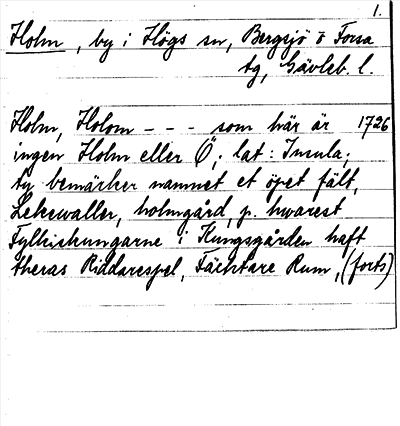 1.
Holm, by i Högs sn, Bergsjö o Forsa
tg, Gävleb. l.
Holm, Holom - - - "som här är 1726
ingen Holm eller Ö; lat: Insula;
ty bemärker namnet et öpet fält,
Lekevaller, holmgård, p. hwarest
Fylkiskungarne i Kungsgården haft
theras Riddarespel, Fächtare Rum, (forts)